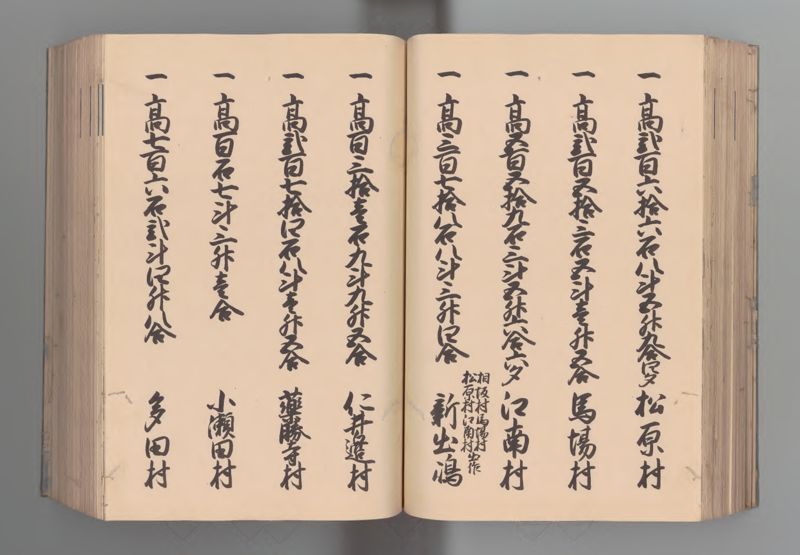 一 高弐百六拾六石八斗五升九合四夕 松原村
一 高弐百五拾三石五斗壱升五合 馬場村
一 高五百五拾九石三斗五升六合六夕 江南村
一 高三百七拾八石八斗三升四合 新出嶋
相坂村馬場村
松原村江南村出作
一 高百三拾壱石九斗九升五合 仁井邉村
一 高弐百七拾四石八斗壱升五合 藥勝寺村
一 高百石七斗三升壱合 小瀬田村
一 高七百六石弐斗四升八合 多田村